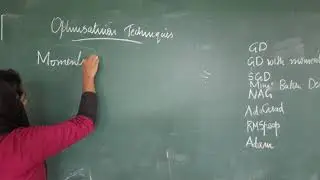 Optimisation Techniques
Moment
GD
GD with moment
SGD
Mini Batch De
NAG
AdaGrad
RMSprop
Adam